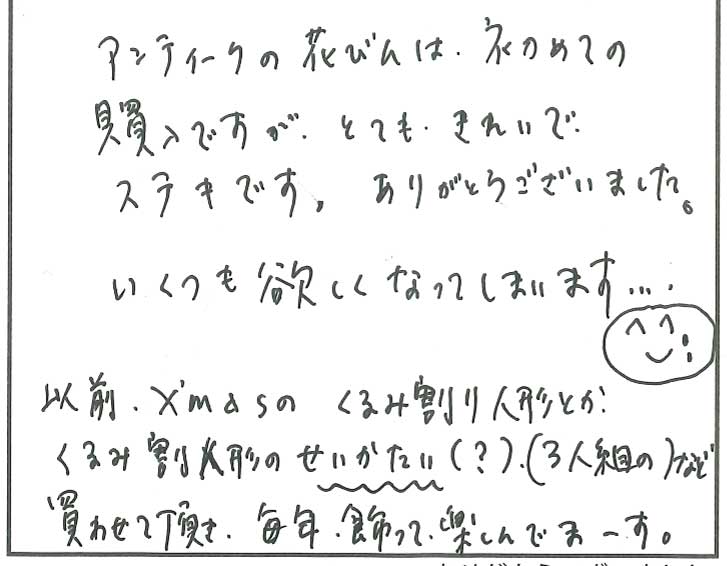 アンティークの花びんは、初めての
購入ですが、とても、きれいで、
ステキです。ありがとうございました。
いくつも欲しくなってしまいます....
以前、X'masの くるみ割り人形とか、
くるみ割人形のせいかたい(?)、(3人組の)など
買わせて頂き、毎年、飾って、楽しんでまーす。